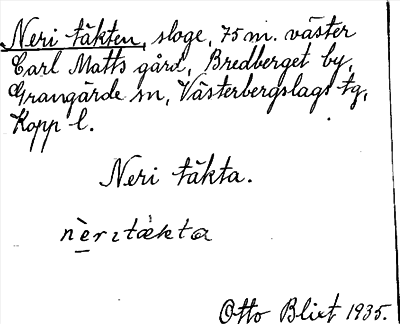 Neri täkten, sloge, 75 m. väster
Carl Matts gård, Bredberget by,
Grangärde sn, Västerbergslags tg,
Kopp l.
Neri täkta.
nèrɪtäkta
Otto Blixt 1935.